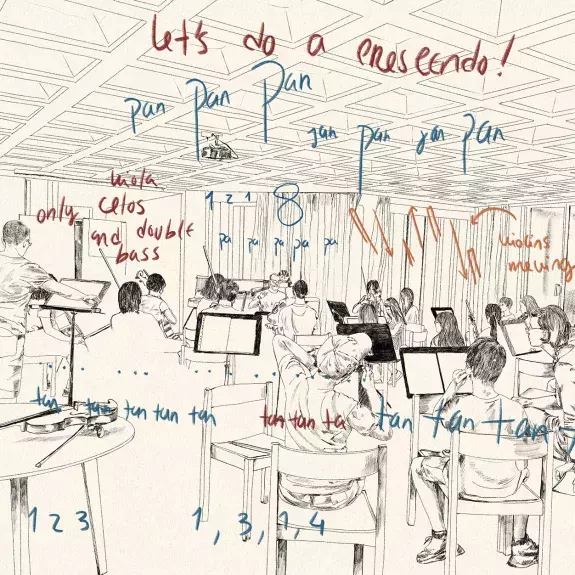 let's do a crescendo!
pan pan pan
pan
pan
viola
only celos
and double
bass
1 2 1 8
pa pa pa pa pa
violins
moving
tan tan tan tan tan
tan tan ta
tan tan tan
1 2 3
1, 3, 1, 4